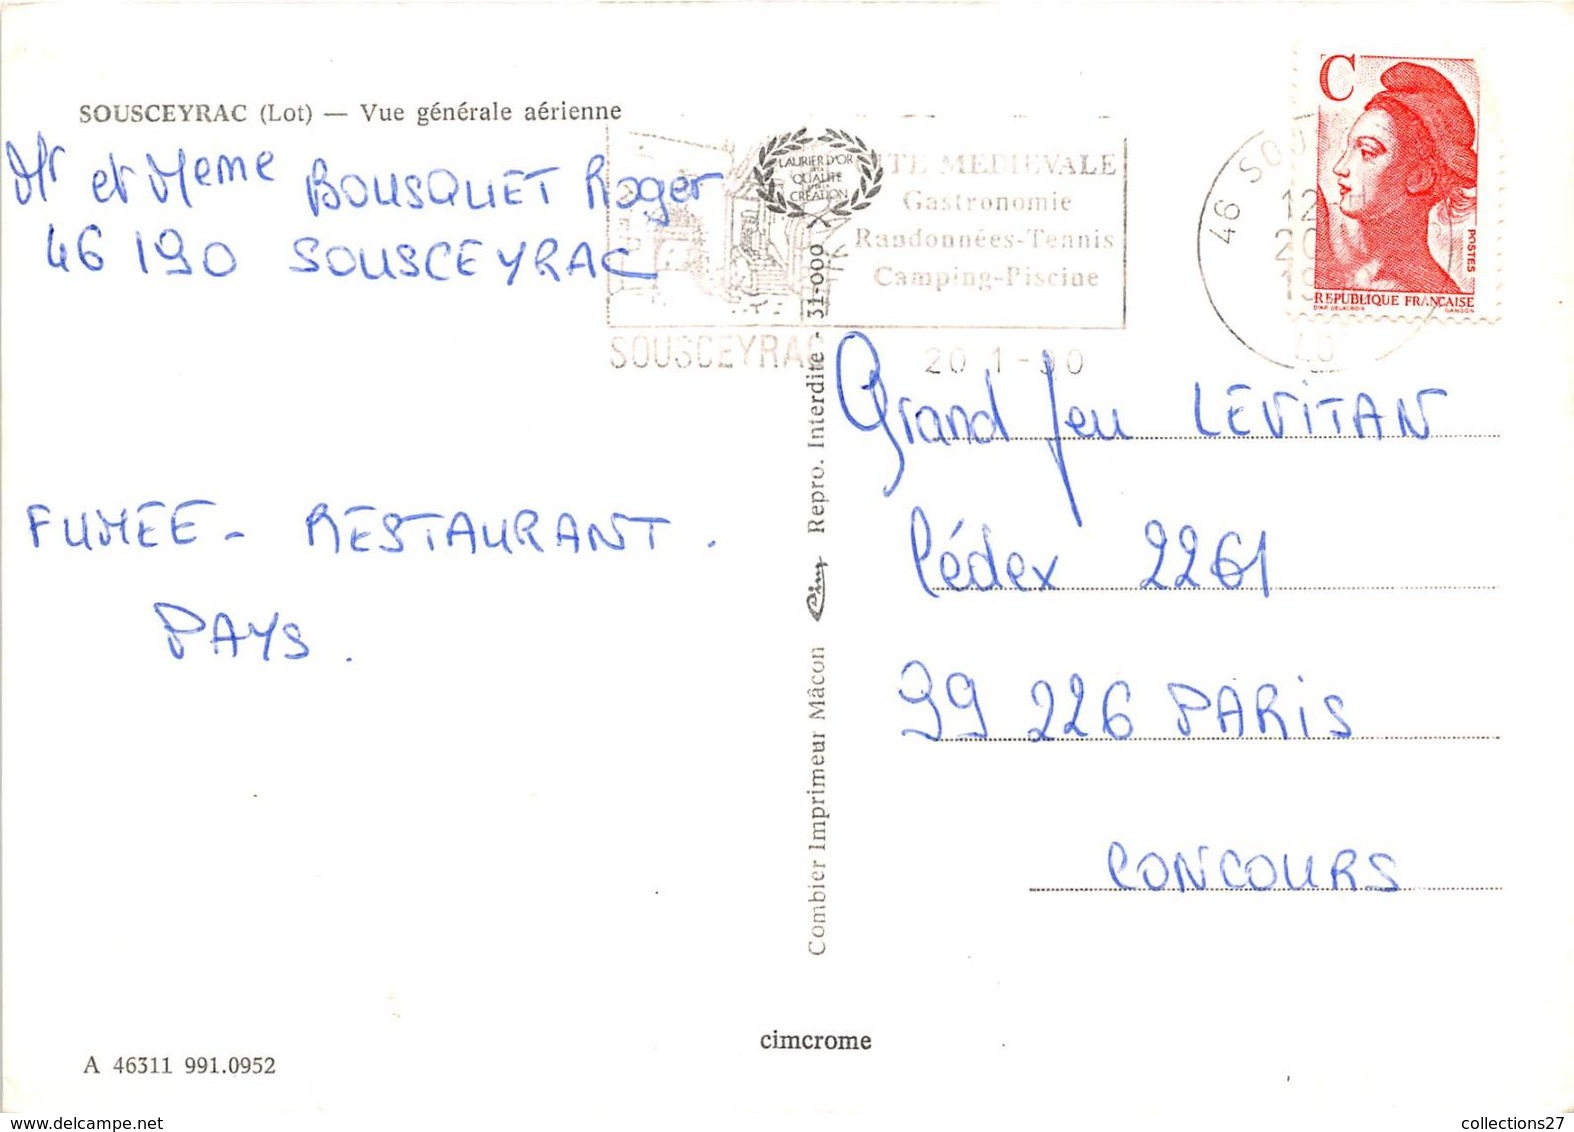 SOUSCEYRAC (Lot) — Vue générale aérienne
Mr et Meme BOUSQUET Roger
46 190 SOUSCEYRAC
FUMEE - RESTAURANT.
PAYS.
LAURIER D'OR
QUALITE
CREATION
MEDIEVALE
Gastronomie
Randonnées-Tennis
Camping-Piscine
SOUSCEYRAC
20 1-90
46
12
20
19
LOT
C
POSTES
REPUBLIQUE FRANÇAISE
D'AP. DELACROIX GANDON
Grand Jeu LEVITAN
Cédex 2261
99 226 PARIS
CONCOURS
Combier Imprimeur Mâcon Cim Repro. Interdite - 31-000
cimcrome
A 46311 991.0952
collections27